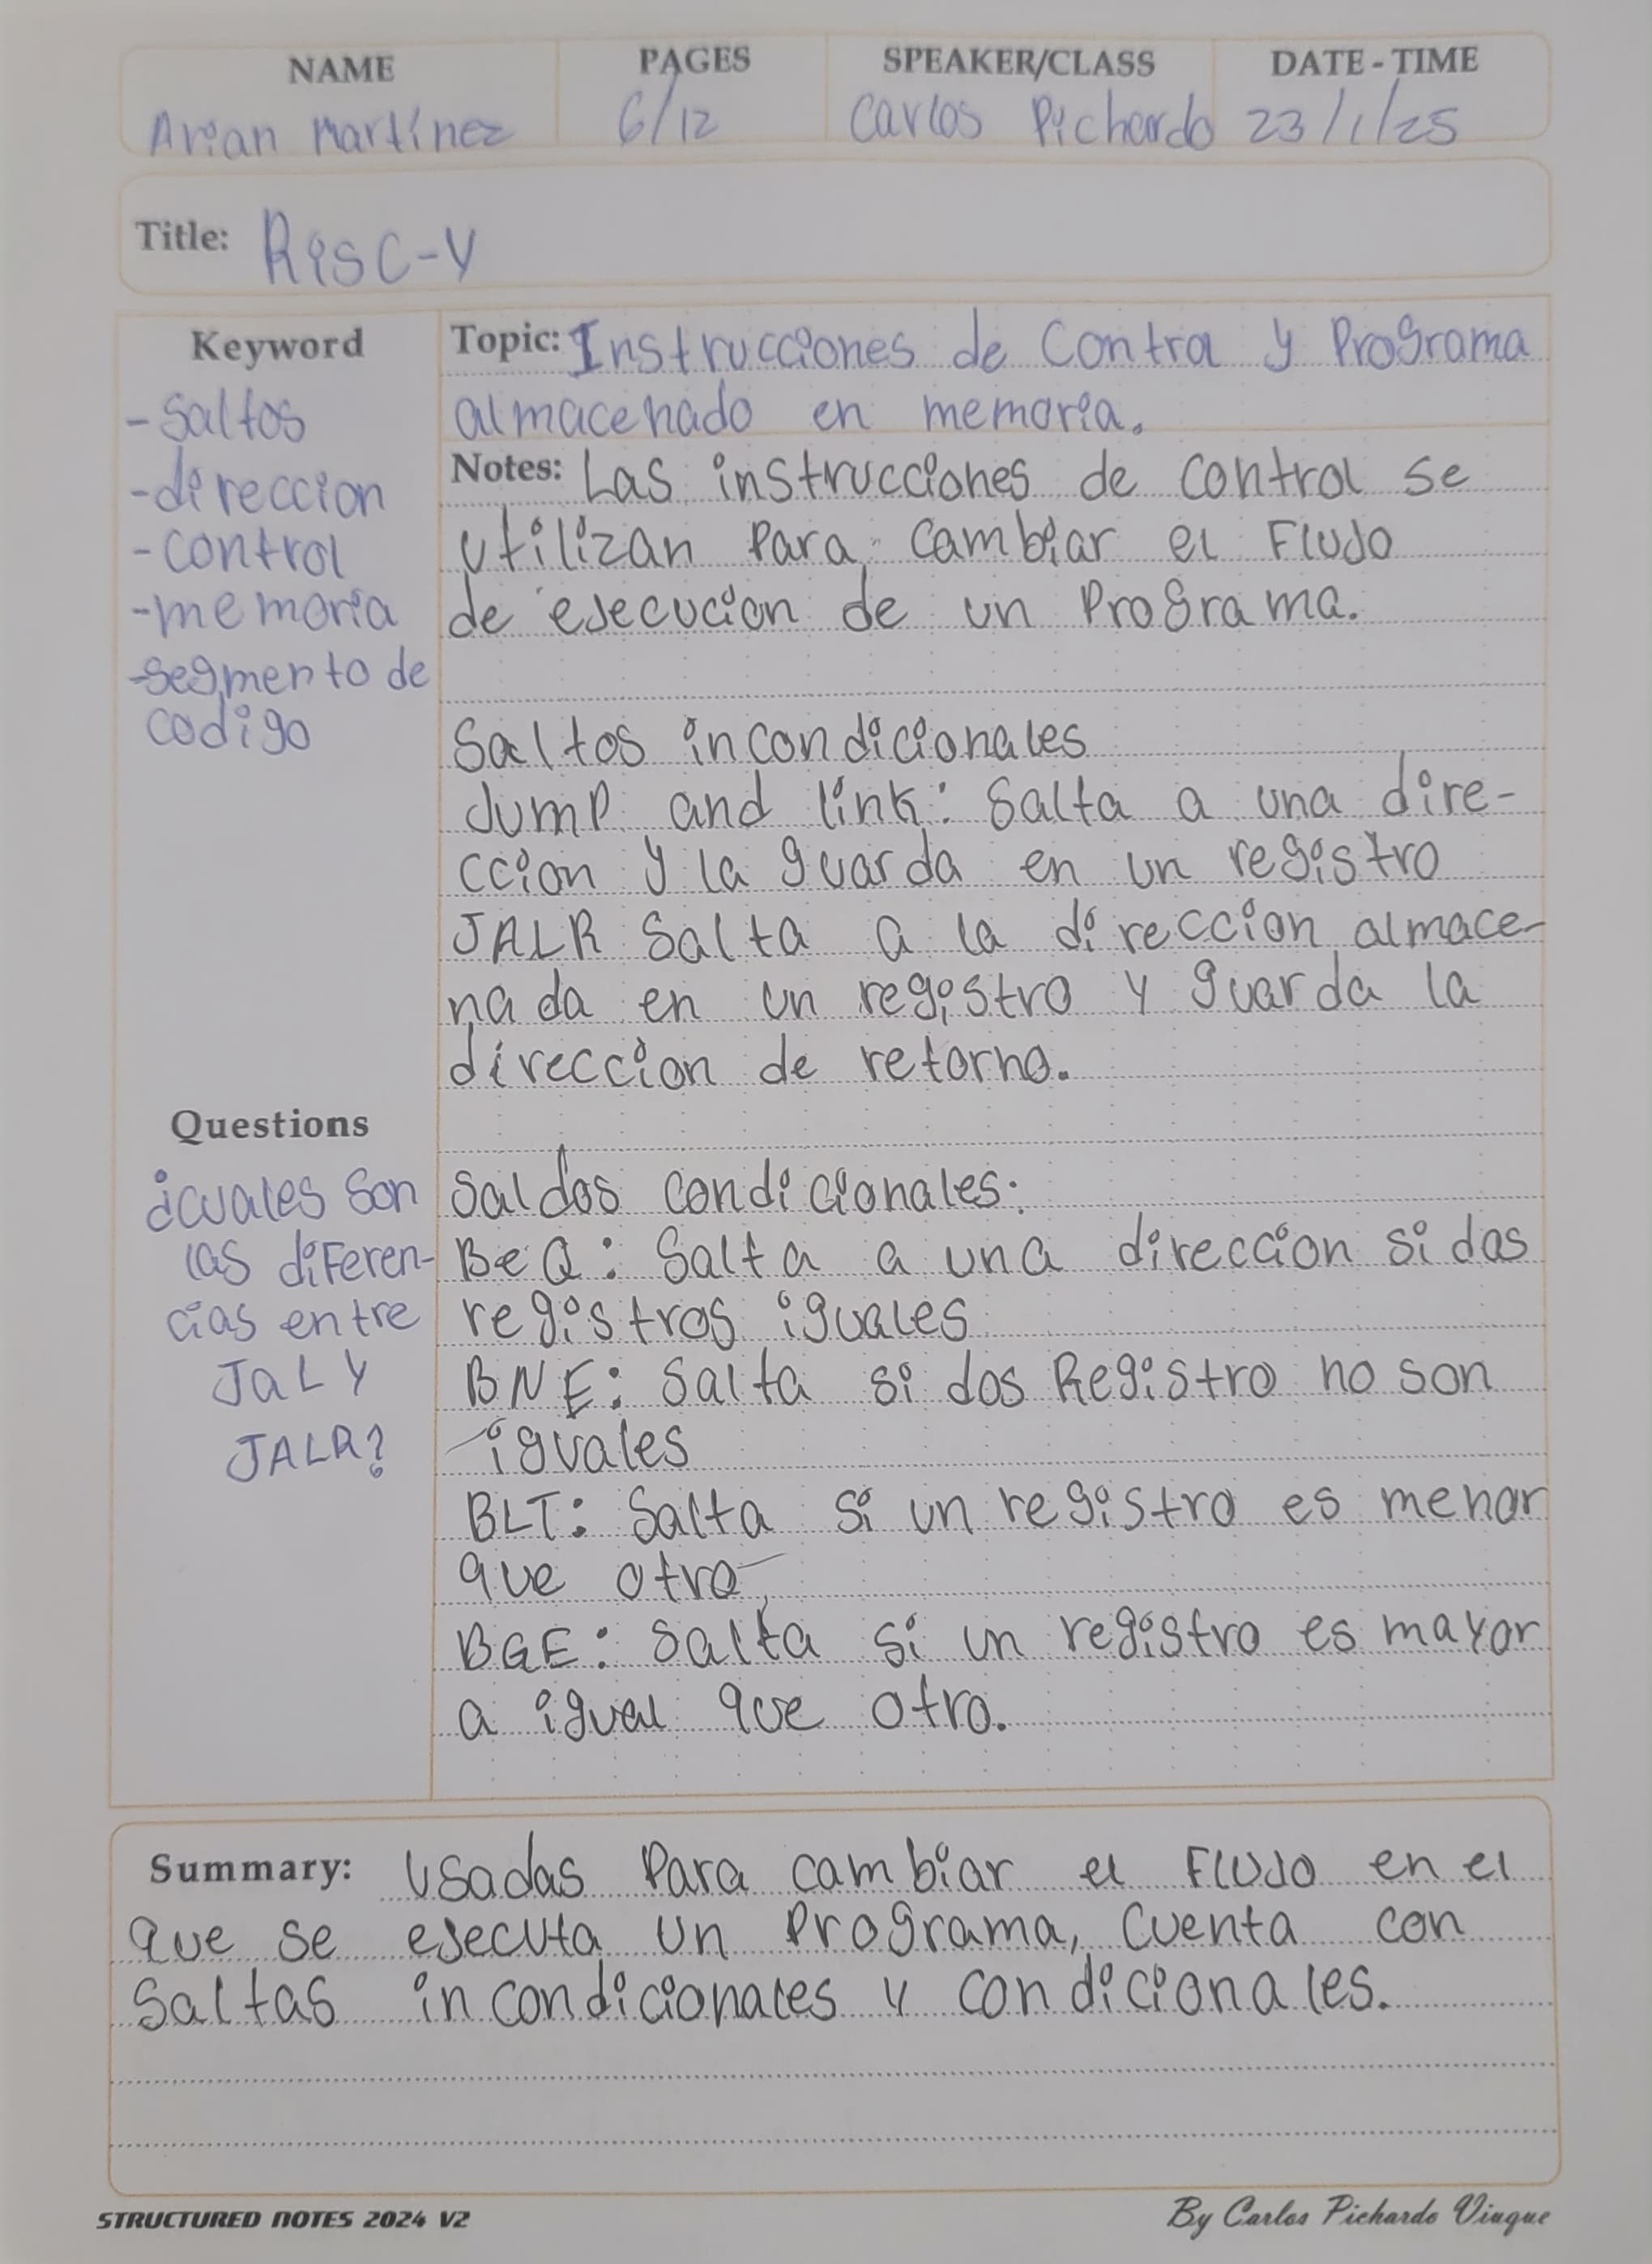 NAME PAGES SPEAKER/CLASS DATE - TIME
Arian Martínez 6/12 Carlos Pichardo 23/1/25
Title: RisC-V
Keyword
- Saltos
-direccion
- control
-memoria
-segmento de
codigo
Topic: Instrucciones de Contra y Programa
almacenado en memoria.
Notes: Las instrucciones de control se
utilizan Para cambiar el Flujo
de ejecucion de un Programa.
Saltos incondicionales
Jump and link: Salta a una dire-
ccion y la guarda en un registro
JALR Salta a la direccion almace-
nada en un registro y guarda la
direccion de retorno.
Questions
¿cuales son
las diferen-
cias entre
JaL y
JALR?
Saldos condicionales:
BeQ: Salta a una direccion si dos
registros iguales
BNE: Salta si dos Registro no son
iguales
BLT: Salta si un registro es menor
que otro
BGE: Salta si un registro es mayor
a igual que otro.
Summary: Usadas Para cambiar el Flujo en el
que se ejecuta un Programa, Cuenta con
Saltas incondicionales y condicionales.
STRUCTURED NOTES 2024 V2 By Carlos Pichardo Viuque